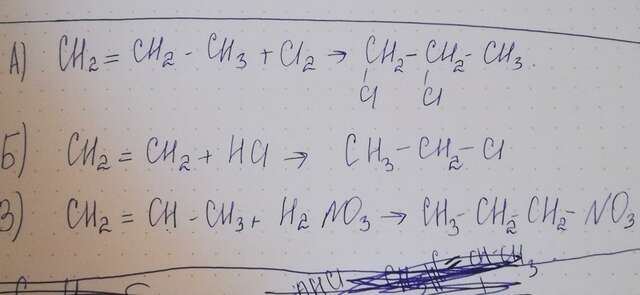 А) CH2 = CH2 - CH3 + Cl2 → CH2 - CH2 - CH3.
Cl Cl
Б) CH2 = CH2 + HCl → CH3 - CH2 - Cl
3) CH2 = CH - CH3 + H2 NO3 → CH3 - CH2 CH2 - NO3